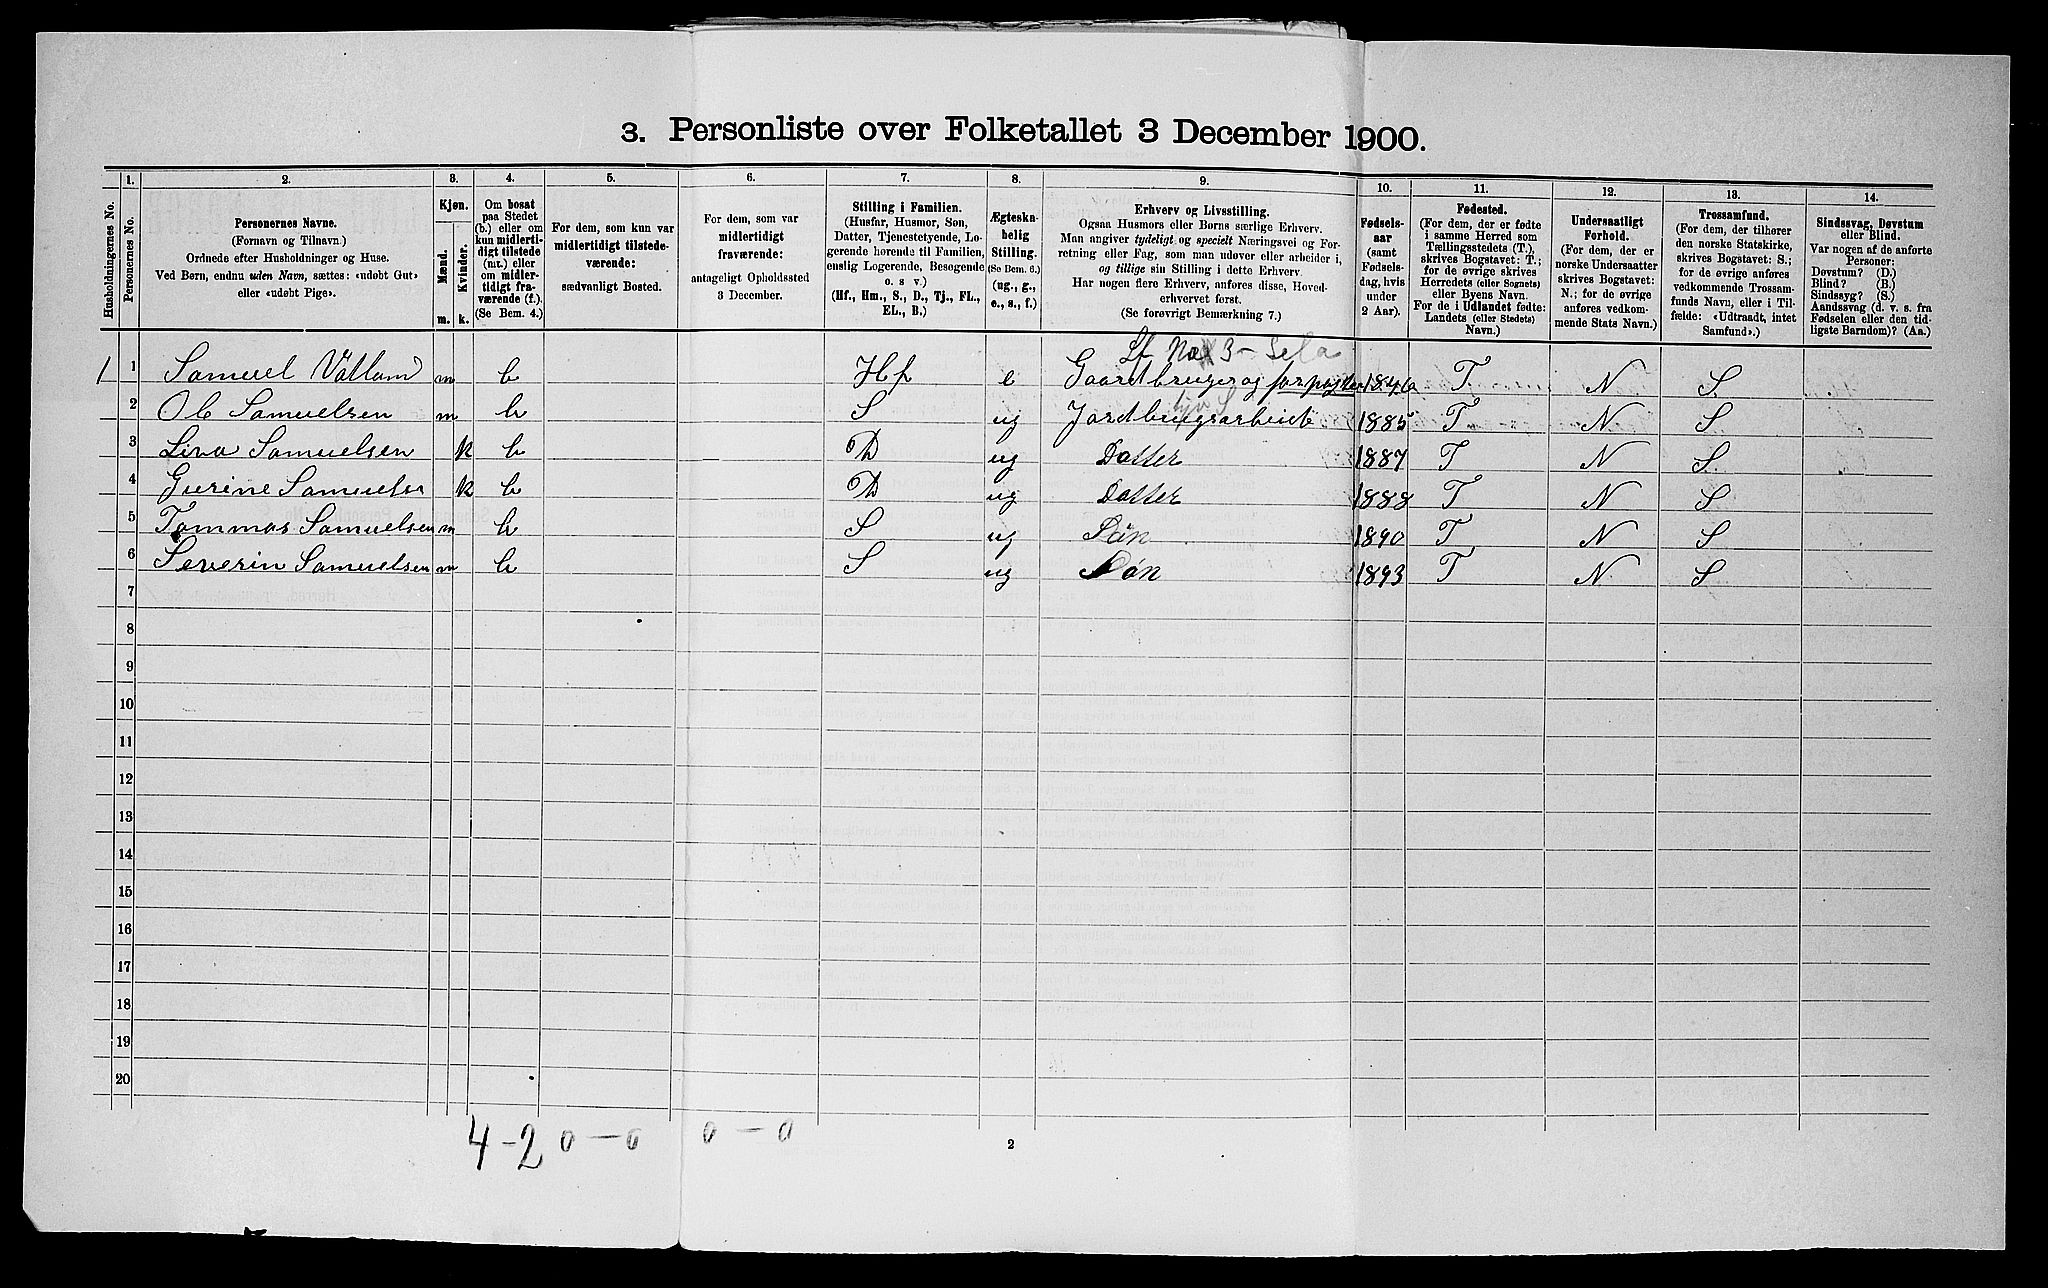 3. Personliste over Folketallet 3 December 1900.
Husholdningernes No.
1. Personernes No.
2. Personernes Navne. (Fornavn og Tilnavn.) Ordnede efter Husholdninger og Huse. Ved Børn, endnu uden Navn, sættes: «udøbt Gut» eller «udøbt Pige».
3. Kjøn. Mænd. m. Kvinder. k.
4. Om bosat paa Stedet (b.) eller om kun midlertidigt tilstede (mt.) eller om midlertidigt fraværende (f.). (Se Bem. 4.)
5. For dem, som kun var midlertidigt tilstedeværende: sædvanligt Bosted.
6. For dem, som var midlertidigt fraværende: antageligt Opholdssted 3 December.
7. Stilling i Familien. (Husfar, Husmor, Søn, Datter, Tjenestetyende, Logerende hørende til Familien, enslig Logerende, Besøgende o. s. v.) (Hf., Hm., S., D., Tj., FL., EL., B.)
8. Ægteskabelig Stilling. (Se Bem. 6.) (ug., g., e., s., f.)
9. Erhverv og Livsstilling. Ogsaa Husmors eller Børns særlige Erhverv. Man angiver tydeligt og specielt Næringsvei og Forretning eller Fag, som man udøver eller arbeider i, og tillige sin Stilling i dette Erhverv. Har nogen flere Erhverv, anføres disse, Hovederhvervet først. (Se forøvrigt Bemærkning 7.)
10. Fødselsaar (samt Fødselsdag, hvis under 2 Aar).
11. Fødested. (For dem, der er fødte i samme Herred som Tællingsstedets (T.), skrives Bogstavet: T.; for de øvrige skrives Herredets (eller Sognets) eller Byens Navn. For de i Udlandet fødte: Landets (eller Stedets) Navn.)
12. Undersaatligt Forhold. (For dem, der er norske Undersaatter skrives Bogstavet: N.; for de øvrige anføres vedkommende Stats Navn.)
13. Trossamfund. (For dem, der tilhører den norske Statskirke, skrives Bogstavet: S.; for de øvrige anføres vedkommende Trossamfunds Navn, eller i Tilfælde: «Udtraadt, intet Samfund».)
14. Sindssvag, Døvstum eller Blind. Var nogen af de anførte Personer: Døvstum? (D.) Blind? (B.) Sindssyg? (S.) Aandssvag (d. v. s. fra Fødselen eller den tidligste Barndom)? (Aa.)
3 -
1 1 Samuel Vatland m b Hf e Gaardbruger og 1846 T. N S.
2 Ole Samuelsen m b S ug Jordbrugsarbeide 1885 T N S
3 Lina Samuelsen k b D ug Datter 1887 T N S.
4 Gurine Samuelse k b D ug Datter 1888 T N S
5 Tommas Samuelsen m b S ug Sön 1890 T N S
6 Severin Samuelsen m b S ug Sön 1893 T N S
7
8
9
10
11
12
13
14
15
16
17
18
19
20
4-2 0-0 0-0
2